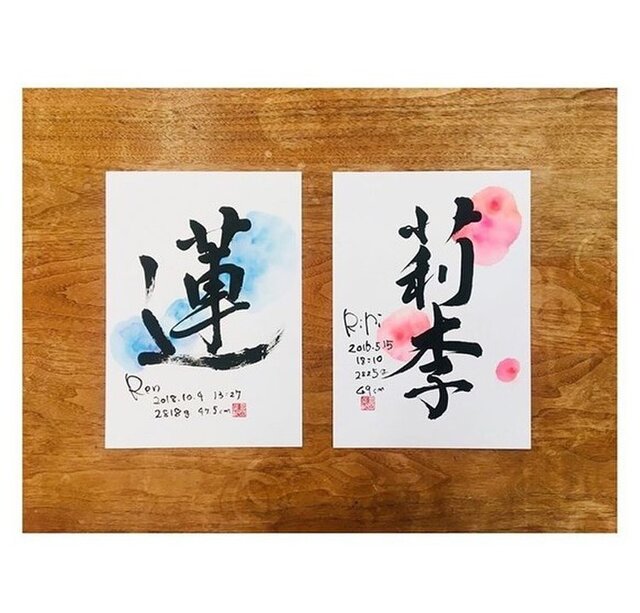 蓮
Ren
2018.10.4 13:27
2818g 47.5cm
莉李
Riri
2016.5.15
18:10
2825g
49cm